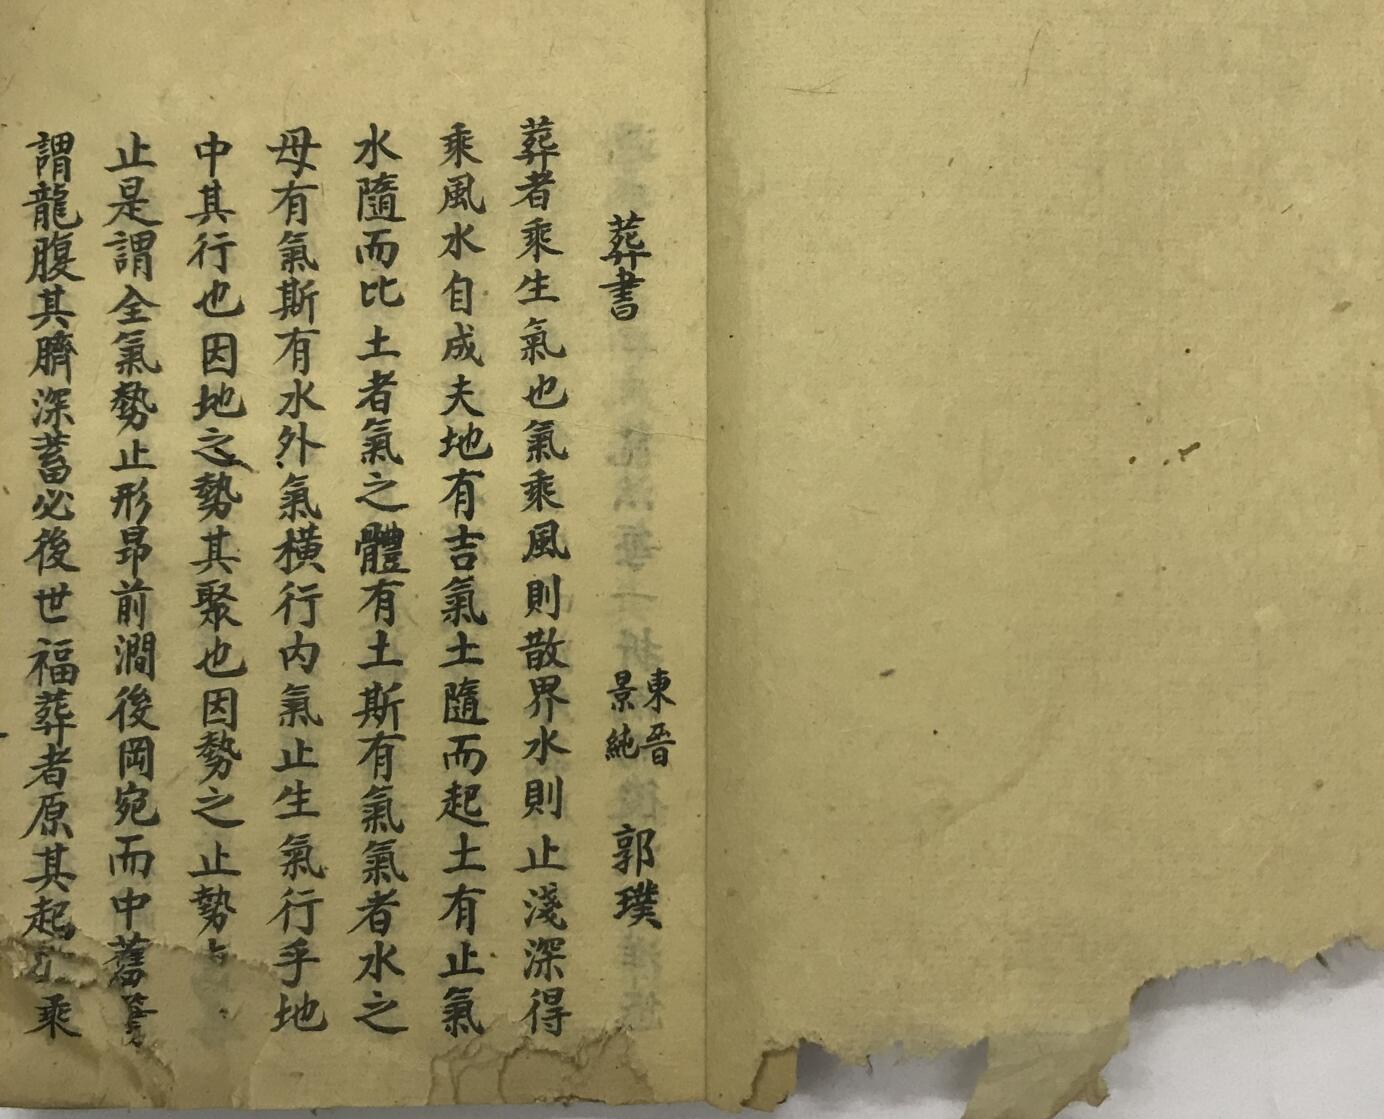 葬書
東晉
景純
郭璞
葬者乘生氣也氣乘風則散界水則止淺深得
乘風水自成夫地有吉氣土隨而起土有止氣
水隨而比土者氣之體有土斯有氣氣者水之
母有氣斯有水外氣橫行内氣止生氣行乎地
中其行也因地之勢其聚也因勢之止勢
止是謂全氣勢止形昂前澗後岡宛而中
謂龍腹其臍深蓄必後世福葬者原其起乘